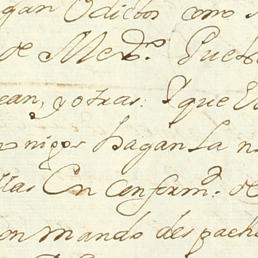 gan Edictos como
de Med.º Pueb
ean, y otras: Y que E
nigos hagan la n
llas En conform.d de
on mando despacha